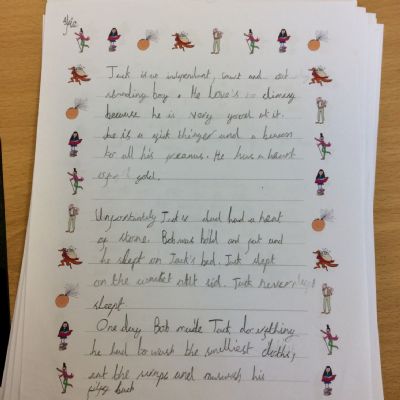 Jack is an independent, smart and out
standing boy. He Love's climing
because he is very good at it.
he is a qick thinger and a
to all his . He has a heart
gold.
Unfortuntely Jack's dad had a heart
of stone. Bob was bold and fat and
he slept on Jack's bed. Jack slept
on the sid. Jack never
sleept
One day Bob made Jack do evrything
he had to wash the smelliest cloths,
eat the and his
back